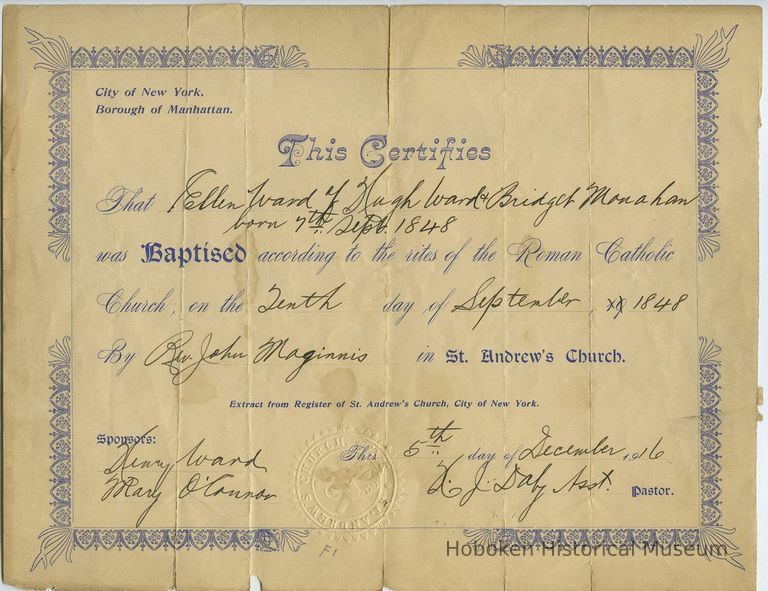 City of New York,
Borough of Manhattan.
This Certifies
That Ellen Ward of Hugh Ward & Bridget Monahan
born 7th Sept. 1848
was Baptised according to the rites of the Roman Catholic
Church, on the Tenth day of September, 1848
By Rev. John Maginnis in St. Andrew's Church.
Extract from Register of St. Andrew's Church, City of New York.
Sponsors:
Henry Ward
Mary O'Connor
This 5th day of December, 1916
J. Daly Asst. Pastor.
F1
Hoboken Historical Museum